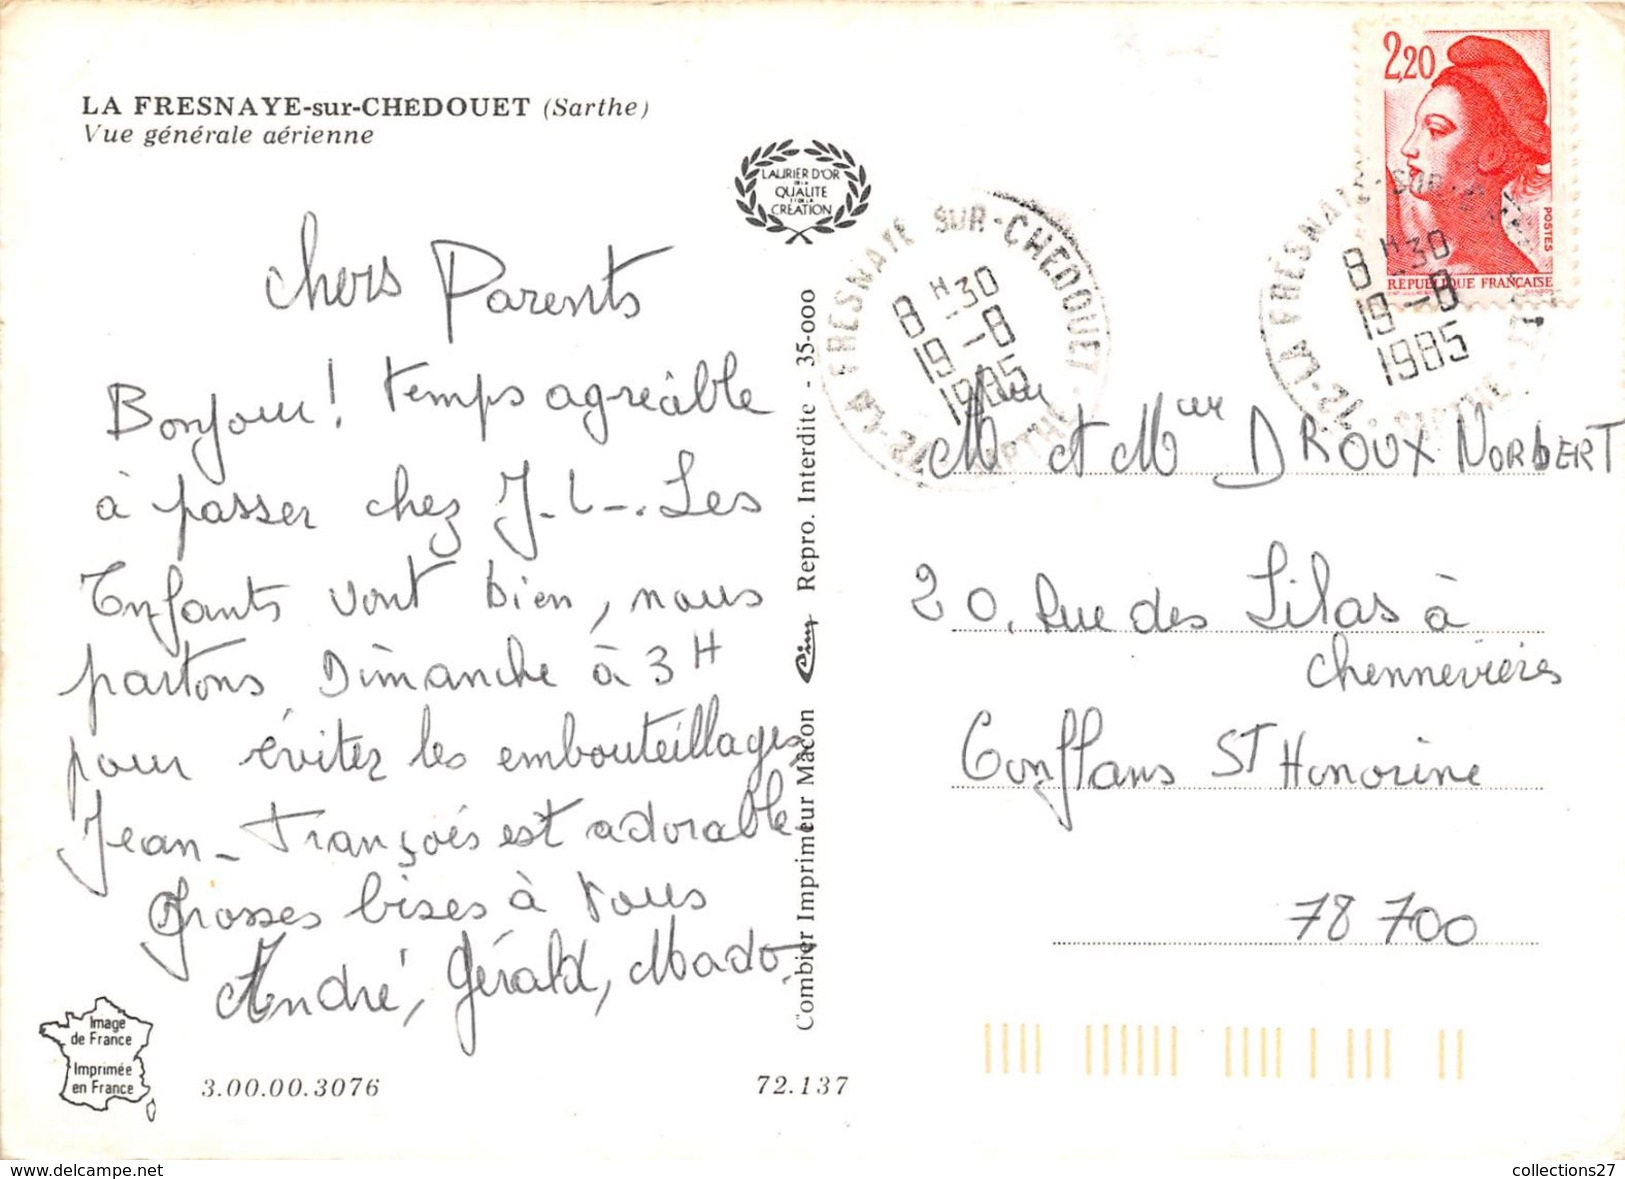 LA FRESNAYE-sur-CHEDOUET (Sarthe)
Vue générale aérienne
LAURIER D'OR
DE LA
QUALITE
ET DE LA
CREATION
Chers Parents
Bonjour! temps agréable
à passer chez J-L-. Les
Enfants vont bien, nous
partons Dimanche à 3H
pour éviter les embouteillages
Jean-François est adorable
Grosses bises à vous
André, Gérald, Mado.
Image
de France
Imprimée
en France
3.00.00.3076
72.137
Combier Imprimeur Mâcon Cim Repro. Interdite - 35-000
72-LA FRESNAYE-SUR-CHEDOUET-SARTHE
8H30
19-8
1985
2,20
POSTES
RÉPUBLIQUE FRANÇAISE
72-LA FRESNAYE-SUR-
SARTHE
8H30
19-8
1985
et DROUX NORBERT
20, Rue des Lilas à
Chennevières
Conflans ST Honorine
78 700
collections27
www.delcampe.net